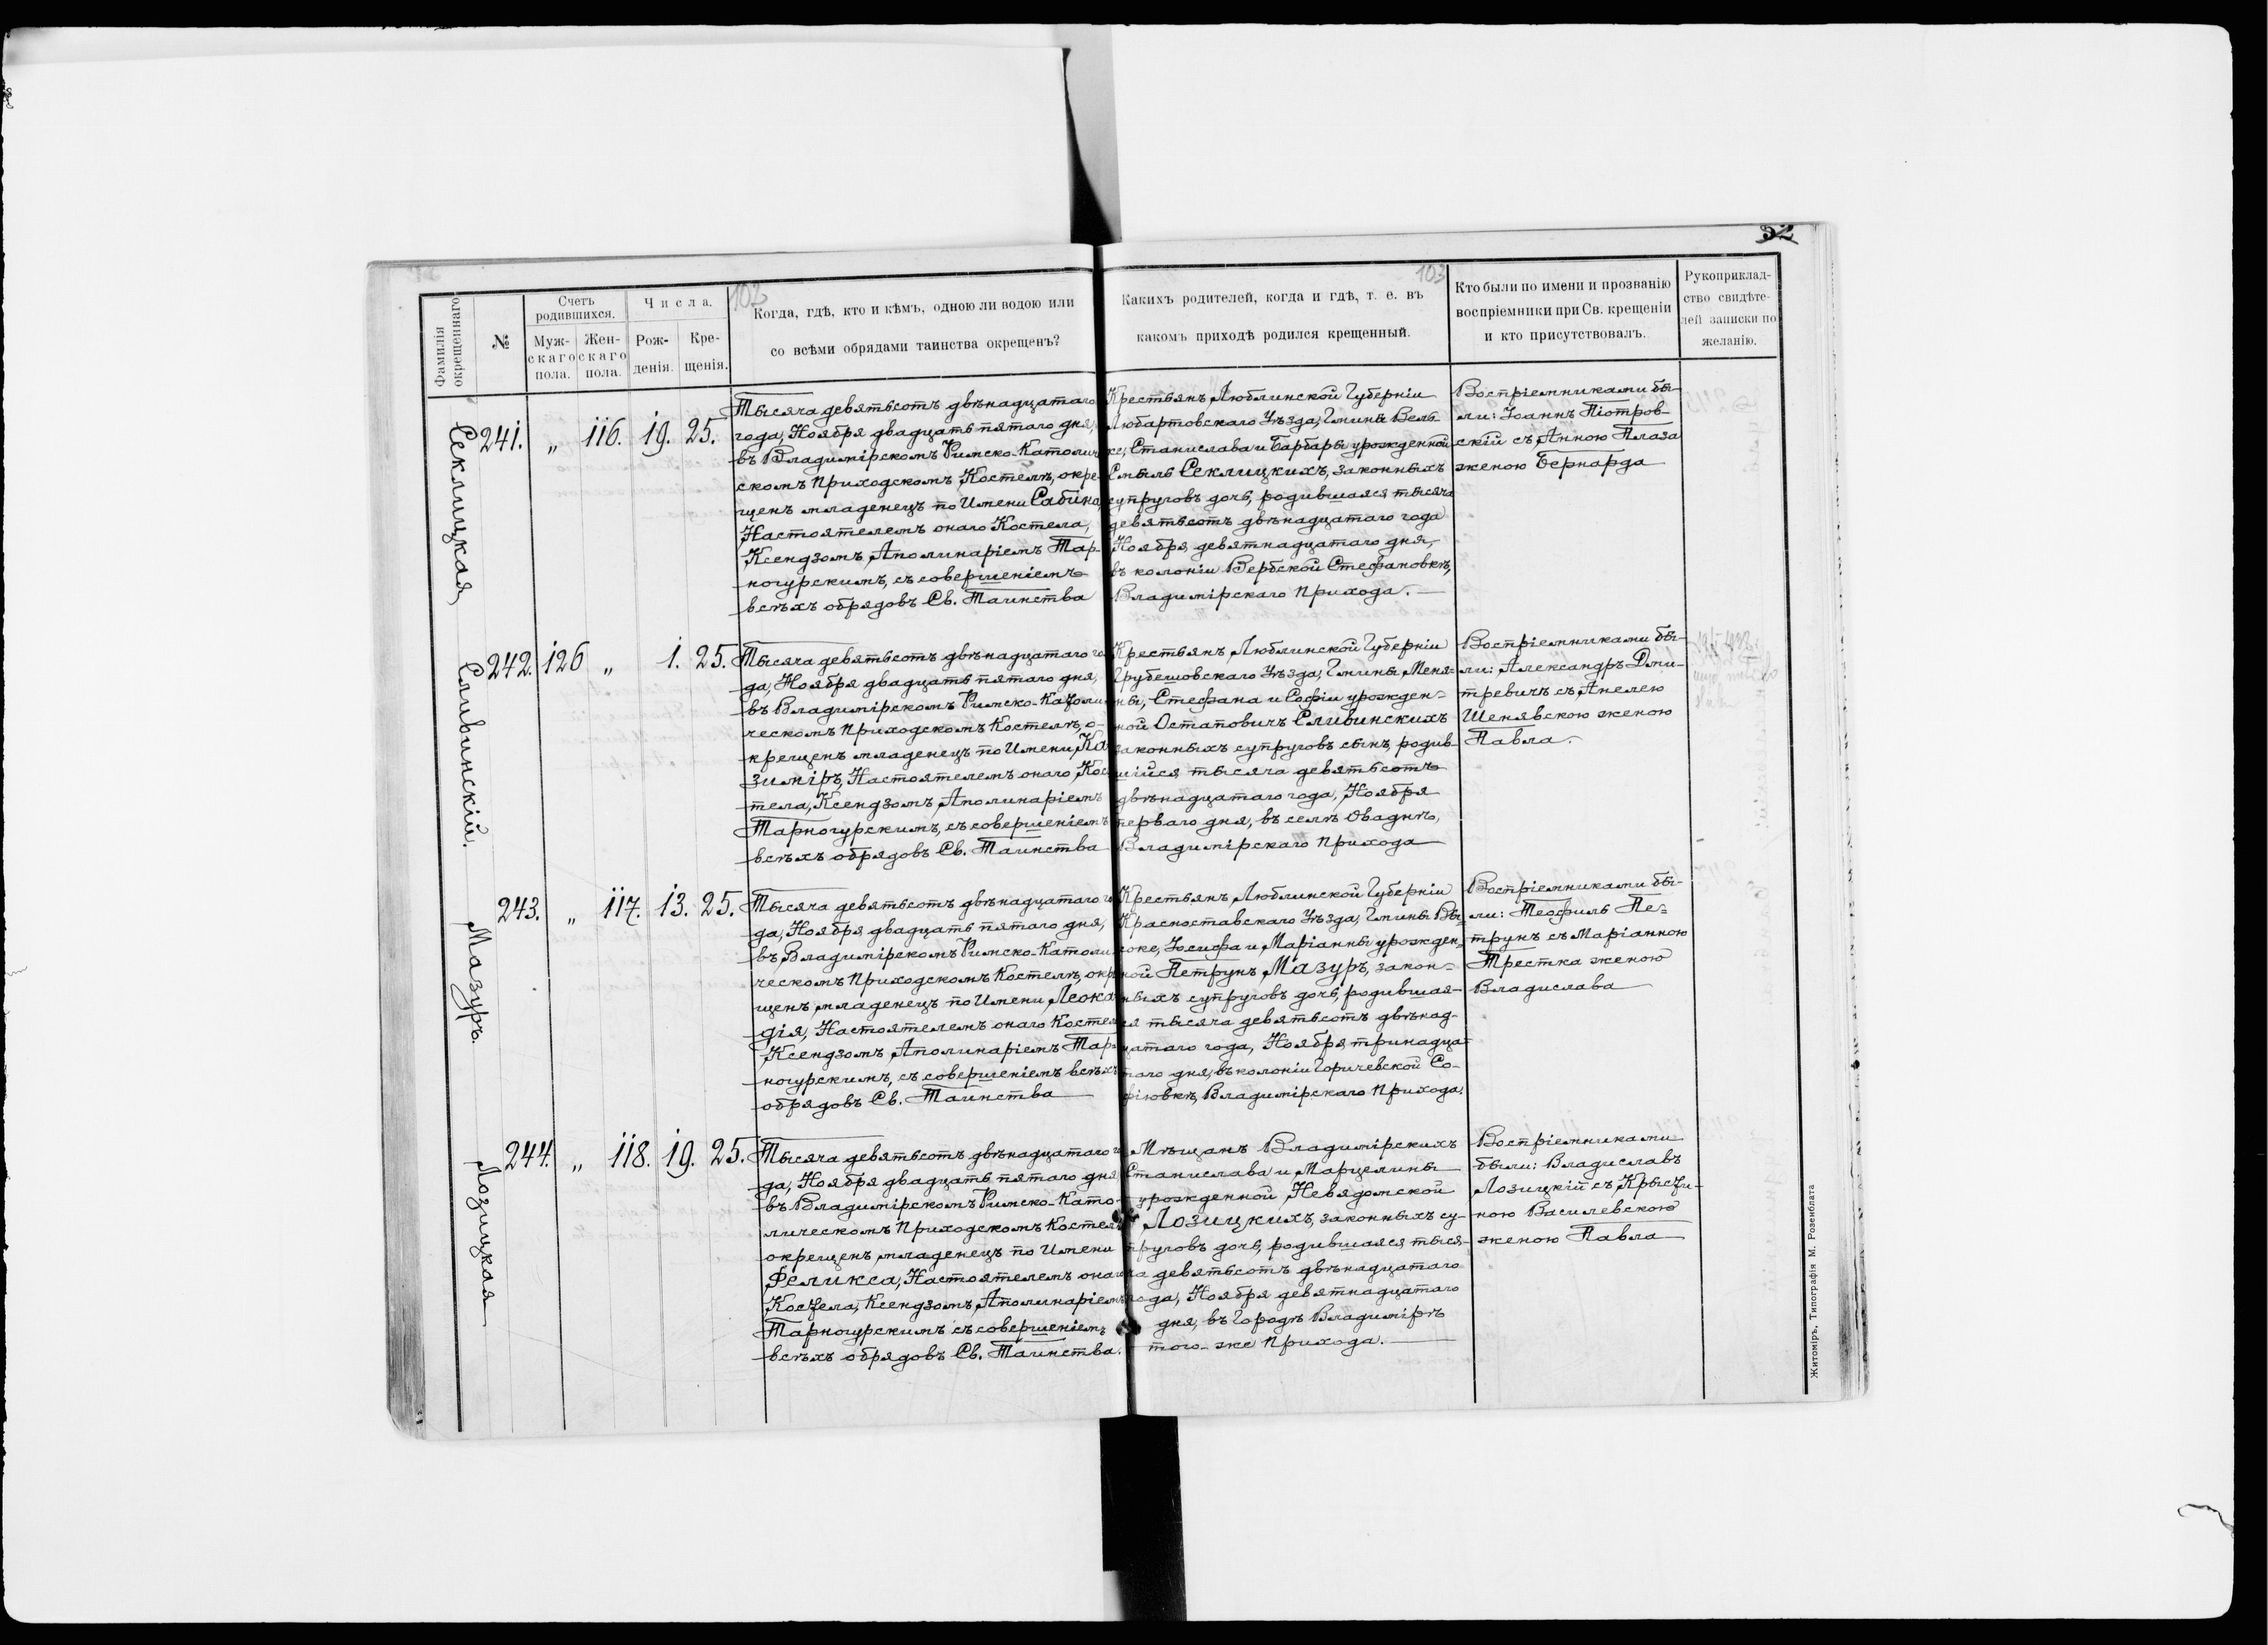 52
102
103
Фамилія окрещеннаго
№
Счетъ родившихся.
Муж-скаго пола.
Жен-скаго пола.
Числа.
Рож-денія.
Кре-щенія.
Когда, гдѣ, кто и кѣмъ, одною ли водою или
со всѣми обрядами таинства окрещенъ?
Какихъ родителей, когда и гдѣ, т. е. въ
какомъ приходѣ родился крещенный.
Кто были по имени и прозванію
воспріемники при Св. крещеніи
и кто присутствовалъ.
Рукоприклад-
ство свидѣте-
лей записки по
желанію.
Секлицкая
241. „ 116. 19. 25.
Тысяча девятьсотъ двѣнадцатаго
года, Ноября двадцать пятаго дня,
въ Владимірскомъ Римско-Католиче
скомъ Приходскомъ Костелѣ, окре-
щенъ младенецъ по Имени Сабина,
Настоятелемъ онаго Костела,
Ксендзомъ Аполинаріемъ Тар-
ногурскимъ, съ совершеніемъ
всѣхъ обрядовъ Св. Таинства
Крестьянъ Люблинской Губерніи
Любартовскаго Уѣзда, Гмины Вель-
ке, Станислава и Барбары урожденной
Смыль Секлицкихъ, законныхъ
супруговъ дочь, родившаяся тысяча
девятьсотъ двѣнадцатаго года
Ноября девятнадцатаго дня,
въ колоніи Вербской Стефановкѣ,
Владимірскаго Прихода.
Воспріемниками бы-
ли: Іоаннъ Піотров-
скій съ Анною Плаза
женою Бернарда
Сливинскій.
242. 126 „ 1. 25.
Тысяча девятьсотъ двѣнадцатаго го
да, Ноября двадцать пятаго дня,
въ Владимірскомъ Римско-Католи
ческомъ Приходскомъ Костелѣ, о-
крещенъ младенецъ по Имени Ка
зиміръ, Настоятелемъ онаго Кос
тела, Ксендзомъ Аполинаріемъ
Тарногурскимъ, съ совершеніемъ
всѣхъ обрядовъ Св. Таинства
Крестьянъ Люблинской Губерніи
Грубешовскаго Уѣзда, Гмины Меня-
ны, Стефана и Софіи урожден-
ной Остаповичъ Сливинскихъ
законныхъ супруговъ сынъ, родив-
шійся тысяча девятьсотъ
двѣнадцатаго года, Ноября
перваго дня, въ селѣ Оваднѣ,
Владимірскаго Прихода
Воспріемниками бы-
ли: Александръ Дми-
тревичъ съ Анелею
Шенявскою женою
Павла.
Мазуръ.
243. „ 117. 13. 25.
Тысяча девятьсотъ двѣнадцатаго го
да, Ноября двадцать пятаго дня,
въ Владимірскомъ Римско-Католи
ческомъ Приходскомъ Костелѣ, окре
щенъ младенецъ по Имени Леока
дія, Настоятелемъ онаго Костела
Ксендзомъ Аполинаріемъ Тар-
ногурскимъ, съ совершеніемъ всѣхъ
обрядовъ Св. Таинства
Крестьянъ Люблинской Губерніи
Красноставскаго Уѣзда, Гмины Вы-
соке, Іосифа и Маріанны урожден-
ной Петрунъ Мазуръ, закон-
ныхъ супруговъ дочь, родившая-
ся тысяча девятьсотъ двѣнад-
цатаго года, Ноября тринадца-
таго дня, въ колоніи Горичевской Со-
фіювкѣ, Владимірскаго Прихода.
Воспріемниками бы-
ли: Теофиль Пе-
трунъ съ Маріанною
Трестка женою
Владислава
Лозицкая
244. „ 118. 19. 25.
Тысяча девятьсотъ двѣнадцатаго го
да, Ноября двадцать пятаго дня
въ Владимірскомъ Римско-Като-
лическомъ Приходскомъ Костелѣ
окрещенъ младенецъ по Имени
Фелика, Настоятелемъ онаго
Костела, Ксендзомъ Аполинаріемъ
Тарногурскимъ съ совершеніемъ
всѣхъ обрядовъ Св. Таинства.
Мѣщанъ Владимірскихъ
Станислава и Марцелины
урожденной Невядомской
Лозицкихъ, законныхъ су-
пруговъ дочь, родившаяся тыся-
ча девятьсотъ двѣнадцатаго
года, Ноября девятнадцатаго
дня, въ Городѣ Владимірѣ
того-же Прихода.
Воспріемниками
были: Владиславъ
Лозицкій съ Крысти-
ною Василевскою
женою Павла
Житоміръ, Типографія М. Розенблата